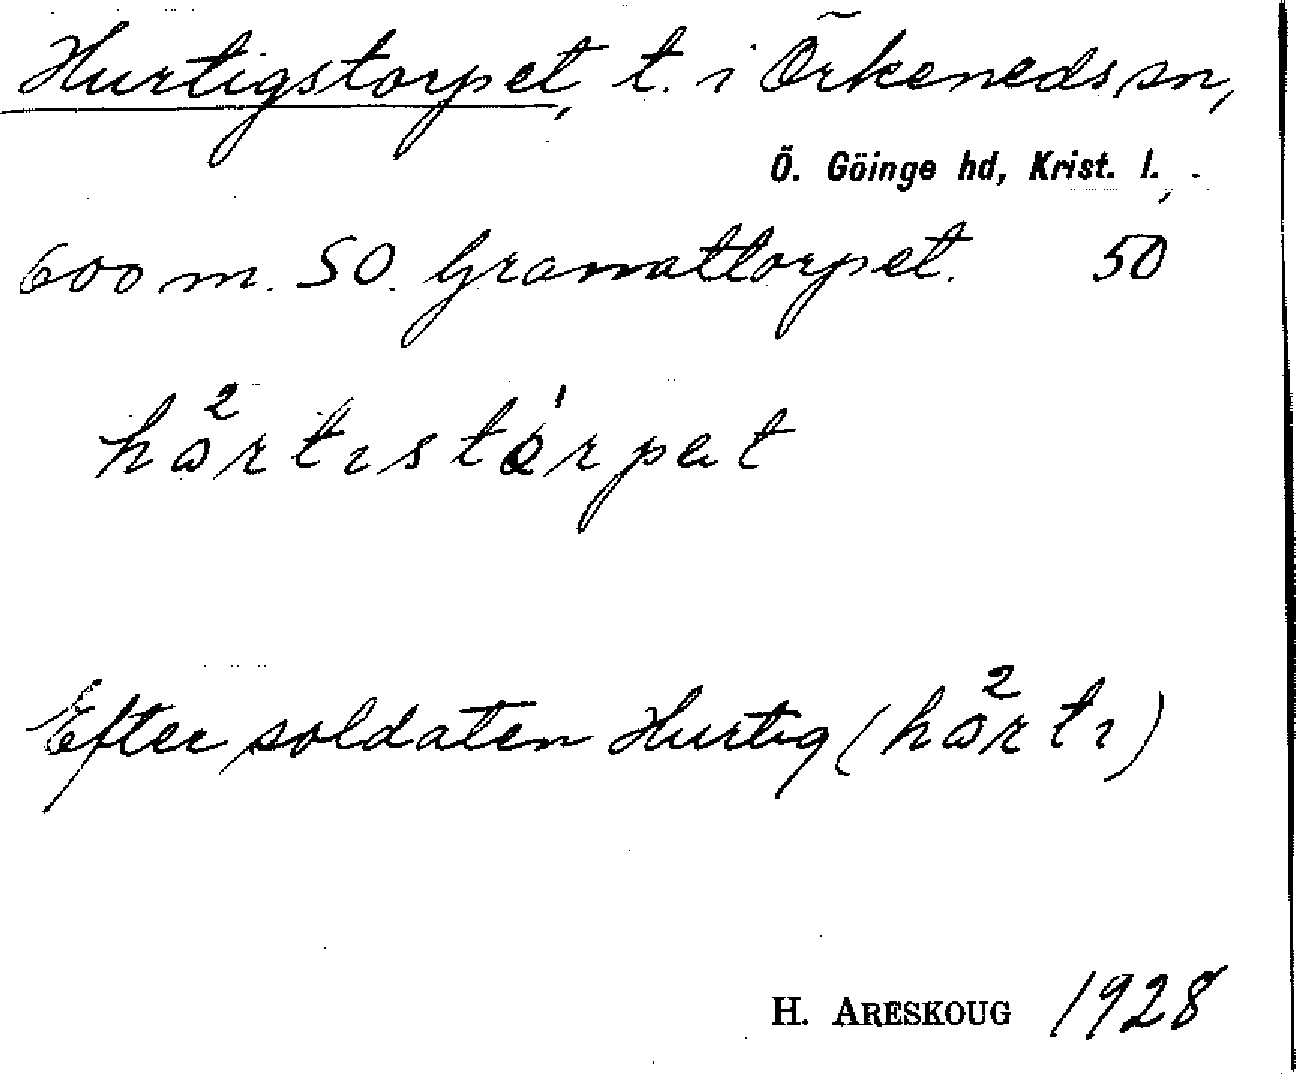 Hurtigstorpet, t. i Örkeneds sn,
Ö. Göinge hd, Krist. l.,
600 m. SO. Granattorpet. 50
hå²rtıstò¹rpet
Efter soldaten Hurtig (hå²rtı)
H. ARESKOUG 1928